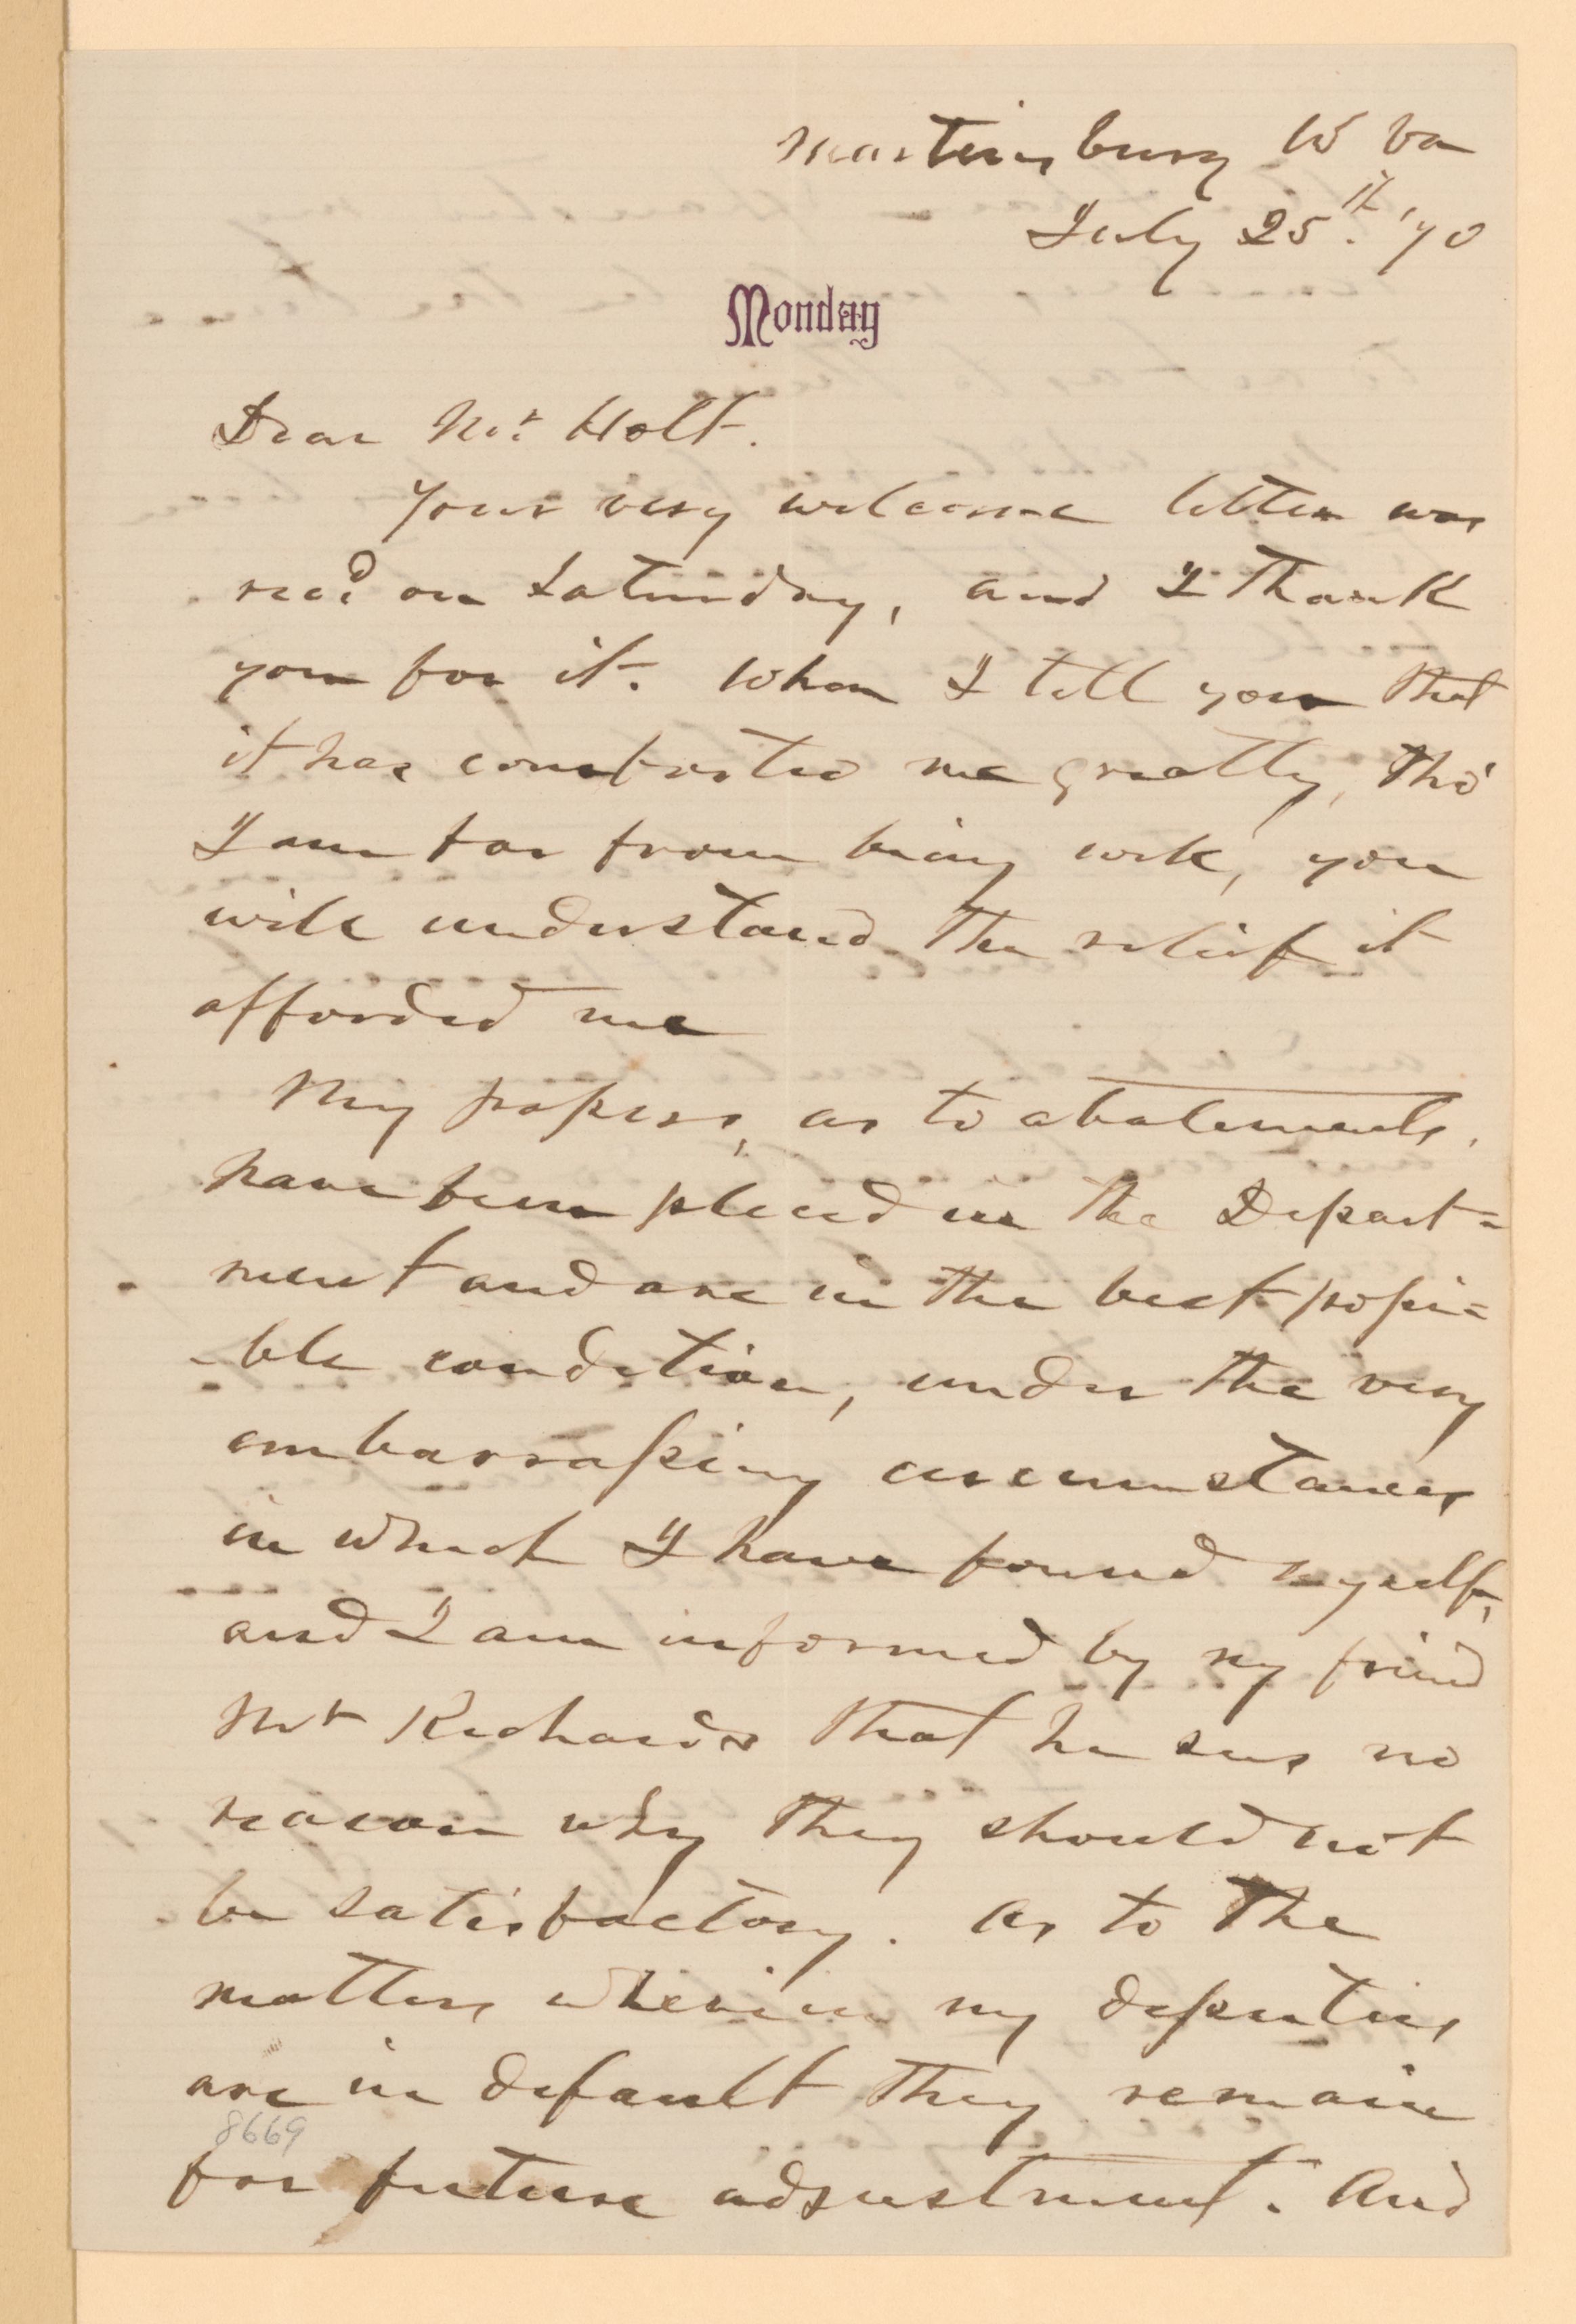 Martinsburg W Va
July 25th. '70
Monday
Dear Mr. Holt.
Your very welcome letter was
recd on Saturday, and I thank
you for it. When I tell you that
it has comforted me greatly, tho'
I am far from being well, you
will understand the relief it
afforded me
My papers, as to abatements,
have been placed in the Depart=
ment and are in the best possi=
-ble condition, under the very
embarrassing circumstances
in which I have found myself,
and I am informed by my friend
Mr Richards that he sees no
reason why they should not
be satisfactory. As to the
matters wherein my deputies
are in default they remain
8669
for future adjustment. And